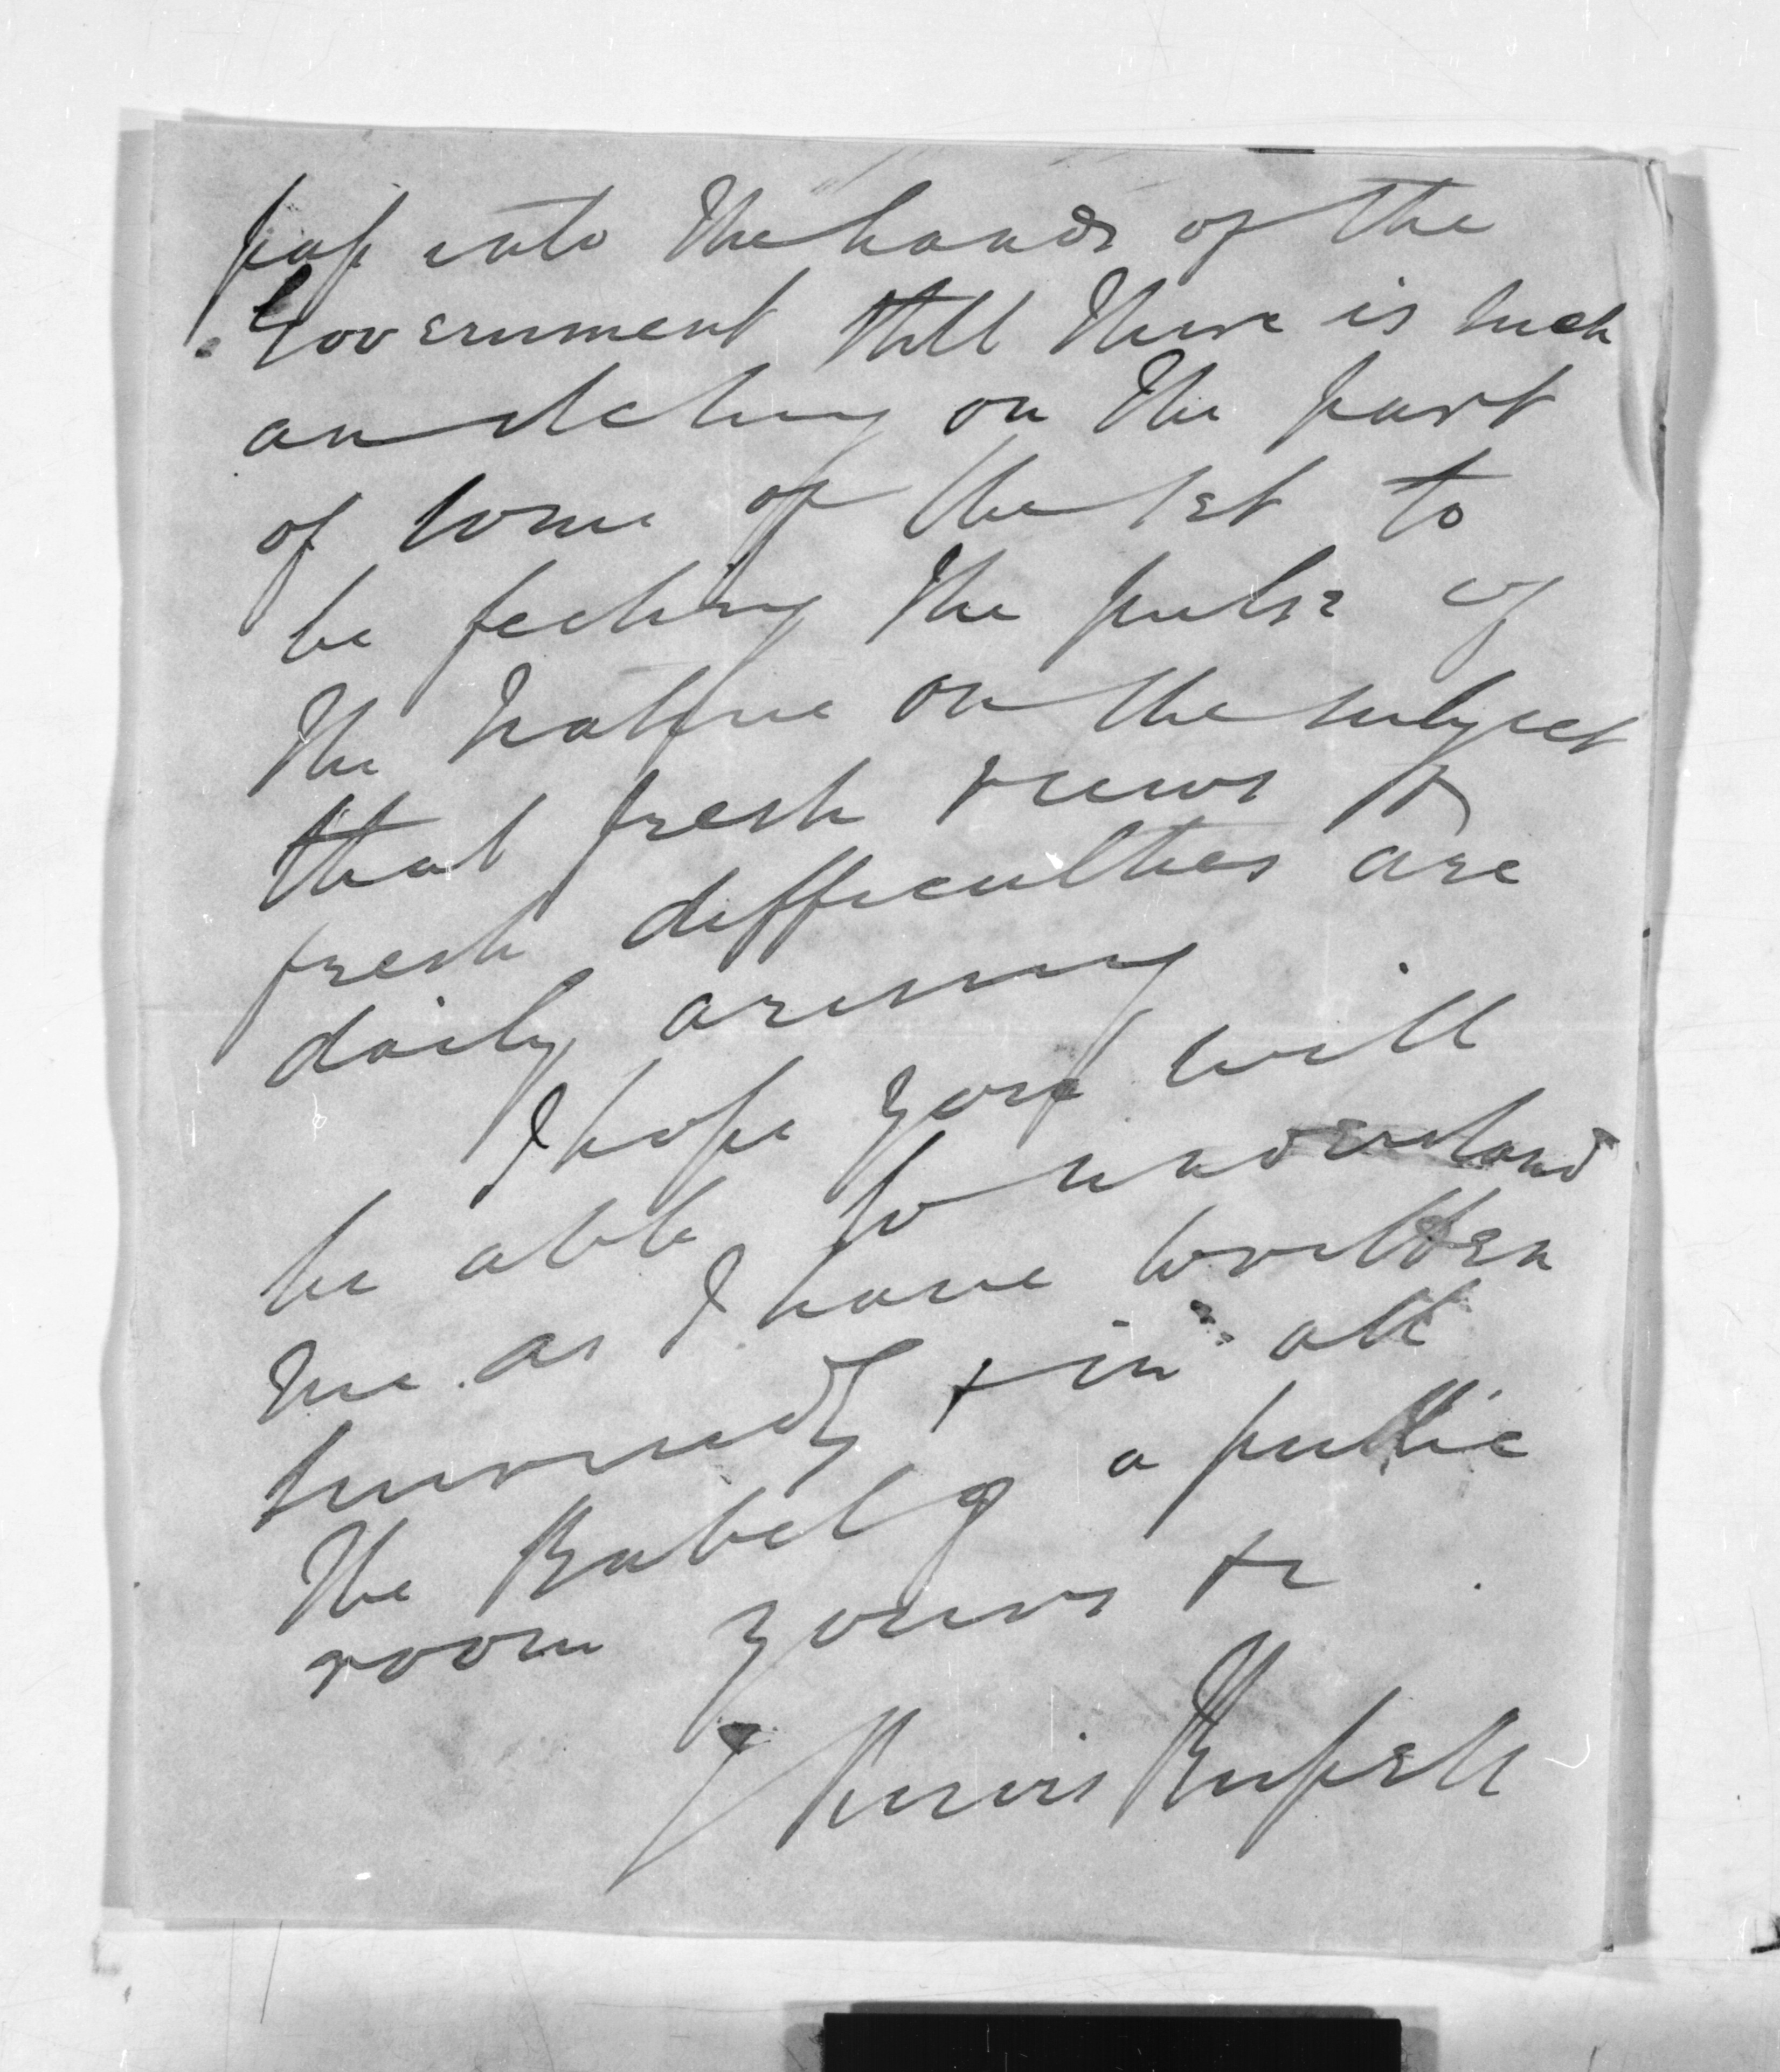 pass into the hands of the
Government still there is such
an itching on the part
of some of the 1st to
be feeling the pulse of
the Native on the subject
that fresh views &
fresh difficulties are
daily arising
I hope you will
be able to understand
me as I have written
hurriedly & in all
the Babel of a public
room yours &c
F Purvis Russell